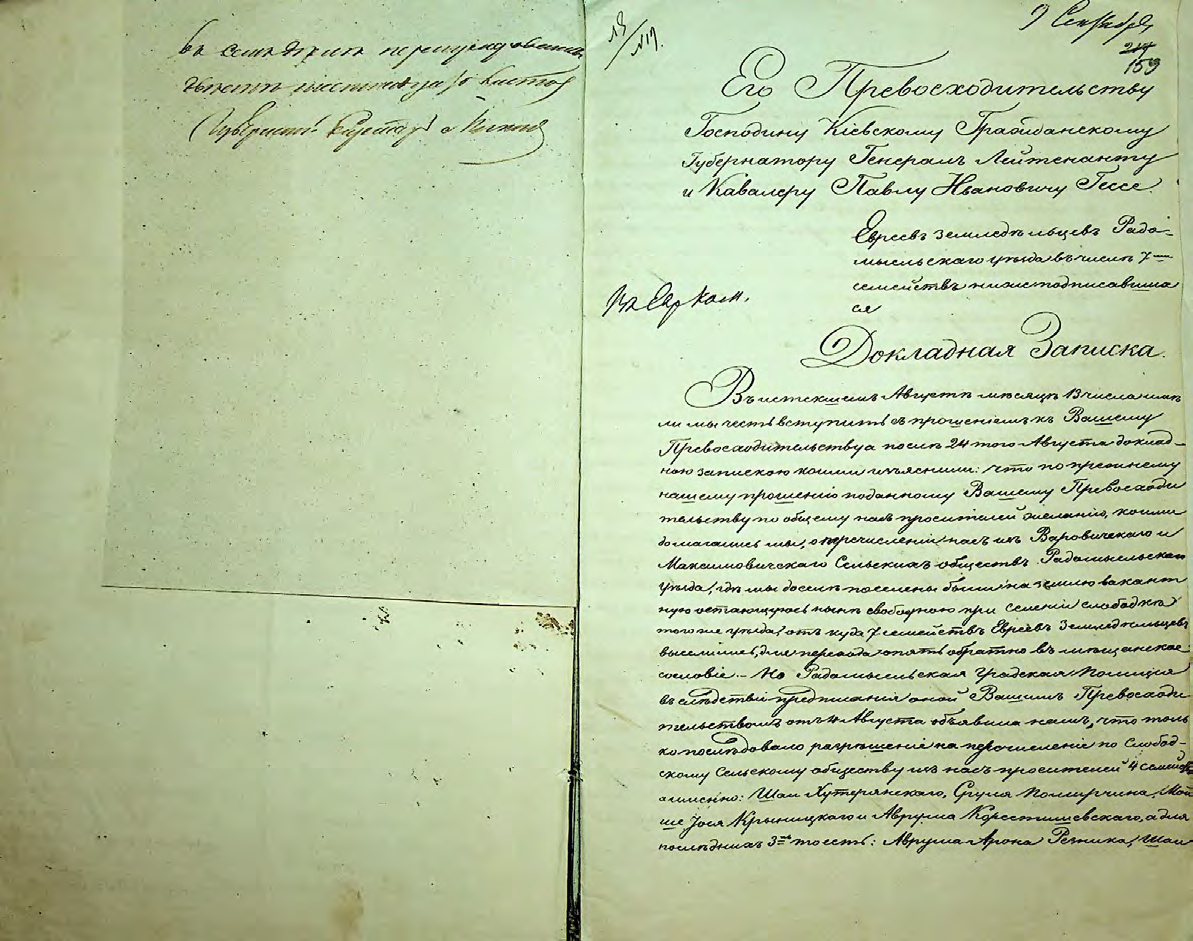 въ
9 Сентября
13/IV19.
159
Его Превосходительству
Господину Кіевскому Гражданскому
Губернатору Генералъ Лейтенанту
и Кавалеру Павлу Ивановичу Гессе
Евреевъ земледѣльцевъ Радо-
мысльскаго уѣзда въ числѣ 7
семействъ нижеподписавших
ся
Докладная Записка.
Въ истекшемъ Августѣ мѣсяцѣ 13 числа имѣ
ли мы честь вступить съ прошеніемъ къ Вашему
Превосходительству а послѣ 24 того Августа доклад-
ною запискою коими изъяснили: что по прежнему
нашему прошенію поданному Вашему Превосходи
тельству по общему насъ просителей желанію, коими
домагались мы, о перечисленіи насъ изъ Варовичскаго и
Максимовичскаго Сельскихъ обществъ Радомысльскаго
уѣзда, гдѣ мы доселѣ поселены были на землю вакант
ную остающуюсь нынѣ свободною при селеніи слободкѣ
того же уѣзда, отъ куда 7 семействъ Евреевъ Земледѣльцевъ
выселились, для перевода опять обратно въ мѣщанское
сословіе. - Но Радомысльская градская Полиція
въ слѣдствіе предписанія оной Вашимъ Превосходи
тельствомъ отъ Августа объявила намъ, что толь
ко послѣдовало разрѣшеніе на перечисленіе по Слобод-
скому Сельскому обществу изъ насъ просителей 4 семейст
а именно: Шаи Хуторянскаго, Сруля Помирчина, Мой
ше Іося Крыницкаго и Аврума Коростишевскаго, а для
послѣднихъ 3 то есть: Аврума Арона Резника, Шаи